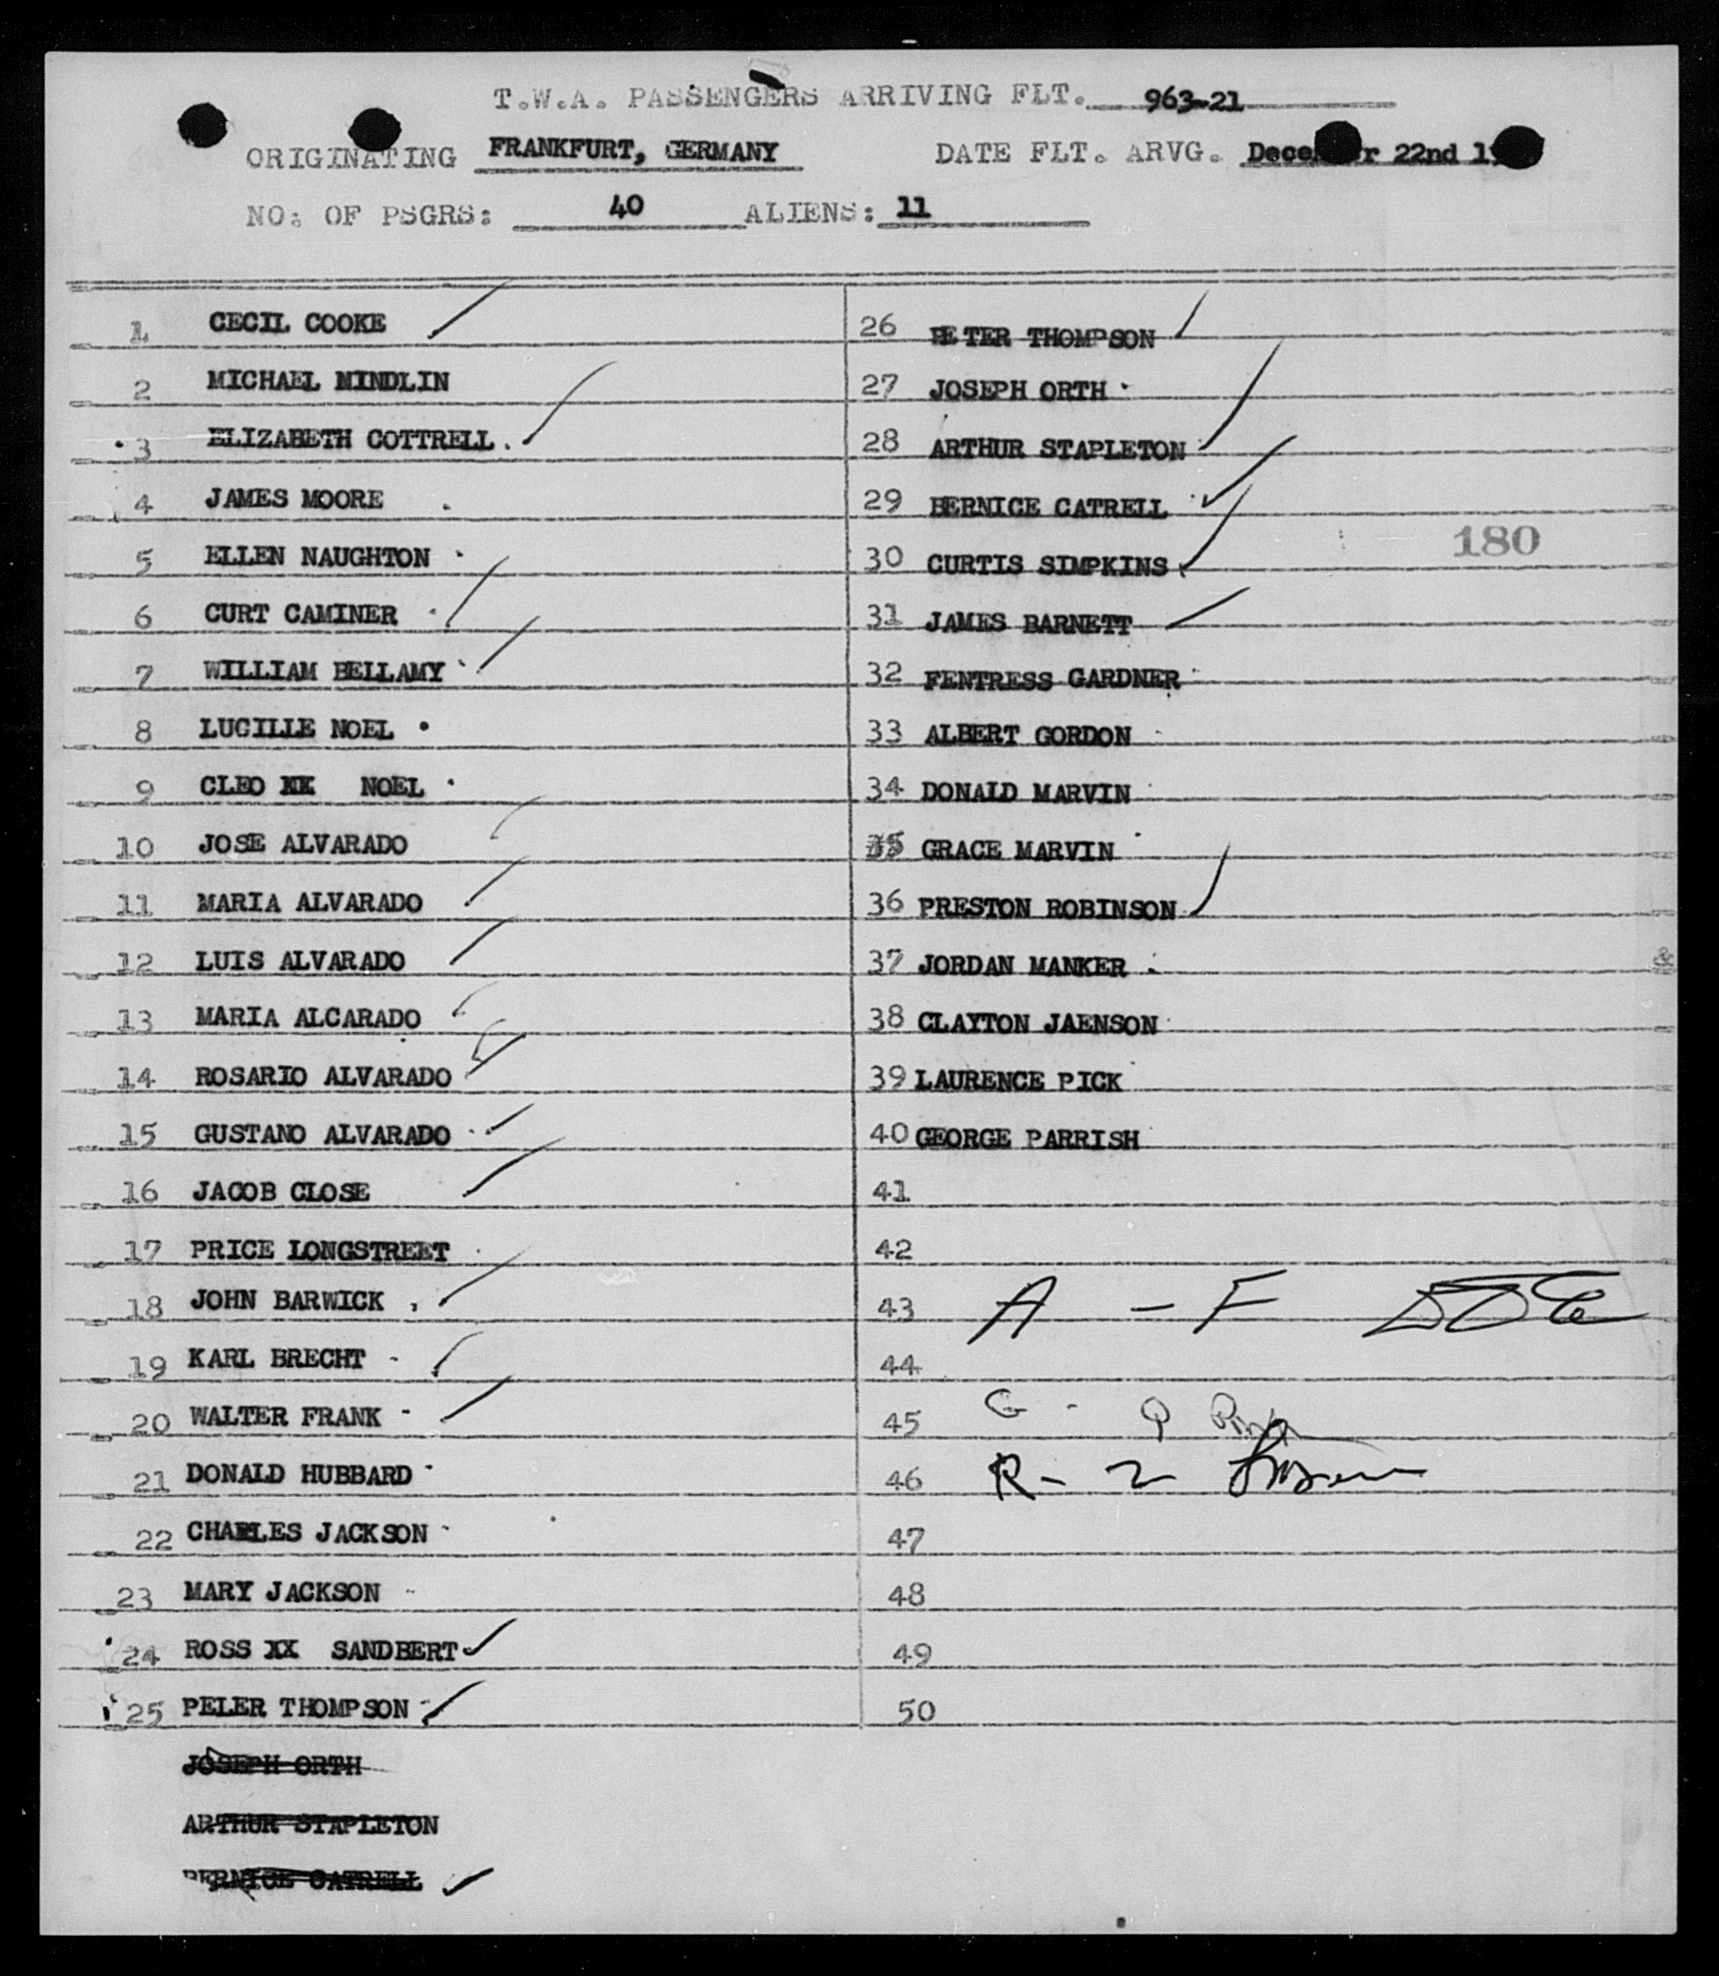 T.W.A. PASSENGERS ARRIVING FLT. 963-21
ORIGINATING FRANKFURT, GERMANY DATE FLT. ARVG. December 22nd
NO. OF PSGRS: 40 ALIENS: 11
1 CECIL COOKE
2 MICHAEL MINDLIN
3 ELIZABETH COTTRELL
4 JAMES MOORE
5 ELLEN NAUGHTON
6 CURT CAMINER
7 WILLIAM BELLAMY
8 LUCILLE NOEL
9 CLEO XX NOEL
10 JOSE ALVARADO
11 MARIA ALVARADO
12 LUIS ALVARADO
13 MARIA ALCARADO
14 ROSARIO ALVARADO
15 GUSTANO ALVARADO
16 JACOB CLOSE
17 PRICE LONGSTREET
18 JOHN BARWICK
19 KARL BRECHT
20 WALTER FRANK
21 DONALD HUBBARD
22 CHARLES JACKSON
23 MARY JACKSON
24 ROSS XX SANDBERT
25 PELER THOMPSON
JOSEPH ORTH
ARTHUR STAPLETON
BERNICE CATRELL
26 PETER THOMPSON
27 JOSEPH ORTH
28 ARTHUR STAPLETON
29 BERNICE CATRELL
30 CURTIS SIMPKINS
180
31 JAMES BARNETT
32 FENTRESS GARDNER
33 ALBERT GORDON
34 DONALD MARVIN
35 GRACE MARVIN
36 PRESTON ROBINSON
37 JORDAN MANKER
&
38 CLAYTON JAENSON
39 LAURENCE PICK
40 GEORGE PARRISH
41
42
43 A - F
44
45 G - Q
46 R - Z
47
48
49
50